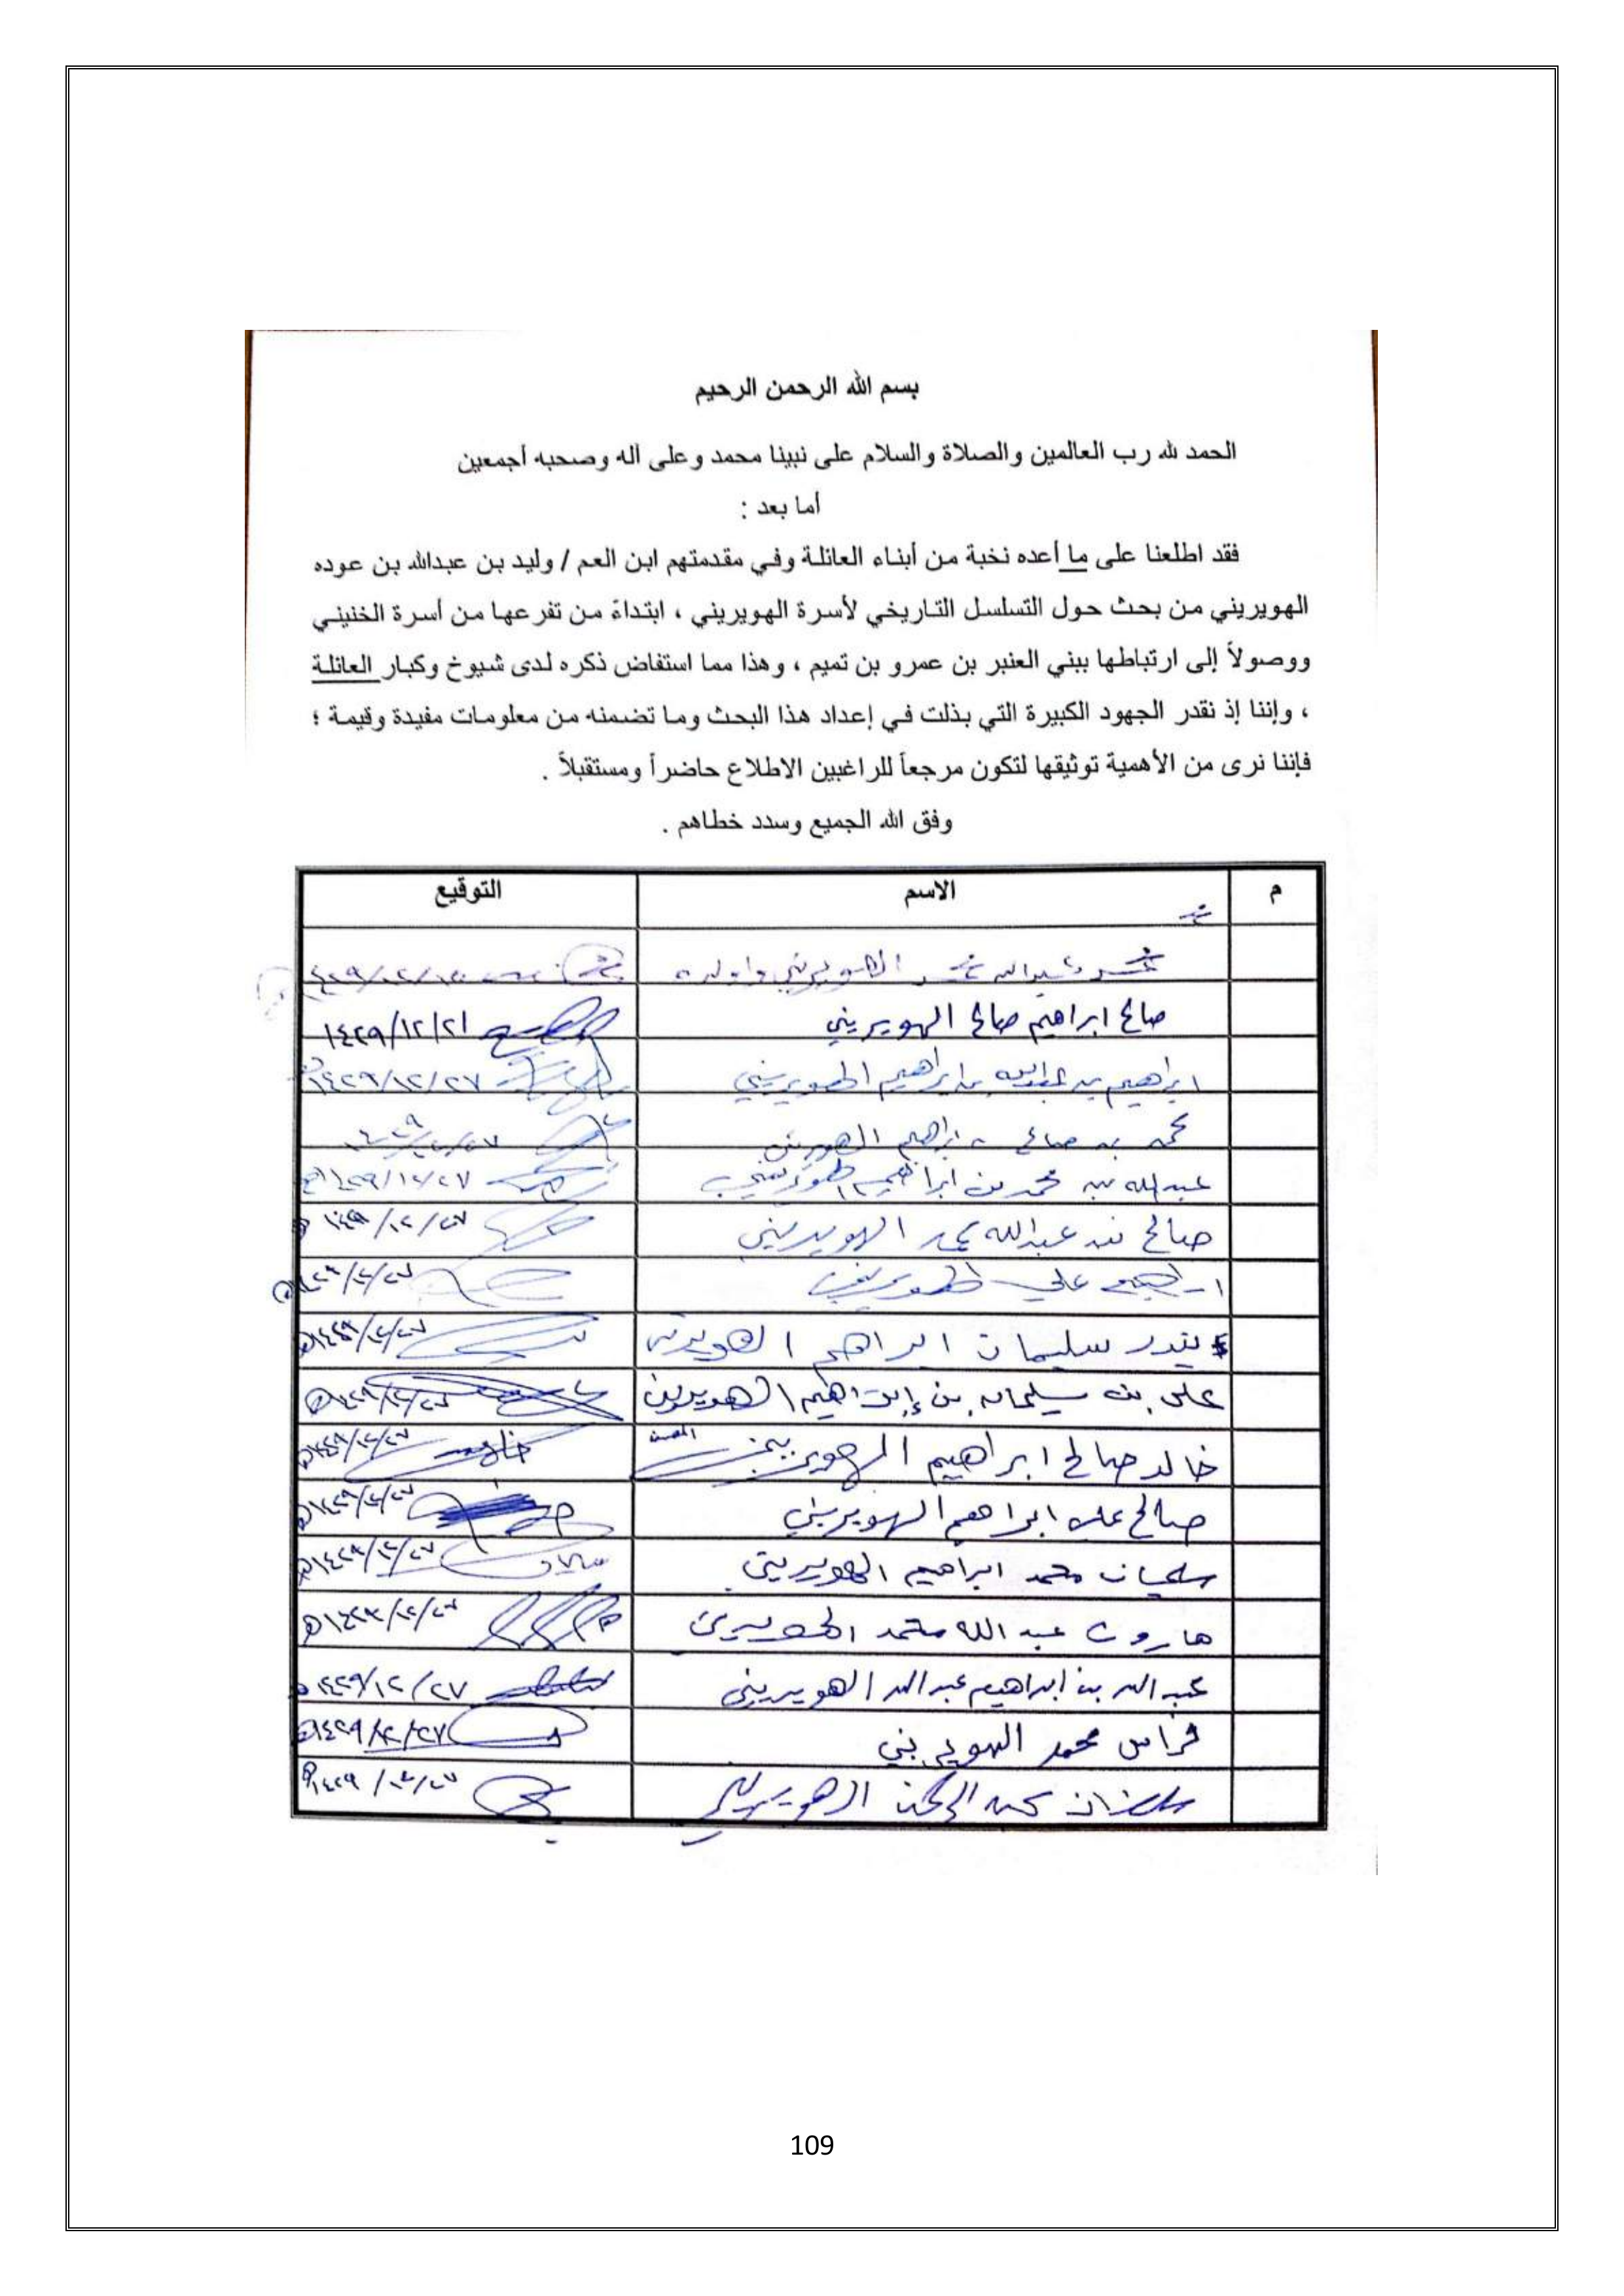 بسم الله الرحمن الرحيم
الحمد لله رب العالمين والصلاة والسلام على نبينا محمد وعلى آله وصحبه أجمعين
أما بعد :
فقد اطلعنا على ما أعده نخبة من أبناء العائلة وفي مقدمتهم ابن العم / وليد بن عبدالله بن عوده
الهويريني من بحث حول التسلسل التاريخي لأسرة الهويريني ، ابتداءً من تفرعها من أسرة الخنيني
ووصولاً إلى ارتباطها ببني العنبر بن عمرو بن تميم ، وهذا مما استفاض ذكره لدى شيوخ وكبار العائلة
، وإننا إذ نقدر الجهود الكبيرة التي بذلت في إعداد هذا البحث وما تضمنه من معلومات مفيدة وقيمة ؛
فإننا نرى من الأهمية توثيقها لتكون مرجعاً للراغبين الاطلاع حاضراً ومستقبلاً .
وفق الله الجميع وسدد خطاهم .
م الاسم التوقيع
محمد عبدالله محمد الهويريني
صالح ابراهيم صالح الهويريني ١٤٢٩/١٢/٢١
ابراهيم بن عبدالله بن ابراهيم الهويريني ١٤٢٩/١٢/٢٧
محمد بن صالح بن ابراهيم الهويريني
عبدالله بن محمد بن ابراهيم الهويريني ١٤٢٩/١٢/٢٧
صالح بن عبدالله محمد الهويريني ١٤٢٩/١٢/٢٧
ابراهيم علي الهويريني ١٤٢٩/١٢/٢٧
بندر سليمان ابراهيم الهويريني ١٤٢٩/١٢/٢٧
علي بن سليمان بن إبراهيم الهويريني ١٤٢٩/١٢/٢٧
خالد صالح ابراهيم الهويريني ١٤٢٩/١٢/٢٧
صالح علي ابراهيم الهويريني ١٤٢٩/١٢/٢٧
سليمان محمد ابراهيم الهويريني ١٤٢٩/١٢/٢٧
هارون عبد الله محمد الهويريني ١٤٢٩/١٢/٢٧
عبدالله بن ابراهيم عبدالله الهويريني ١٤٢٩/١٢/٢٧
فراس محمد الهويريني ١٤٢٩/١٢/٢٧
الهويريني ١٤٢٩/١٢/٢٧
109